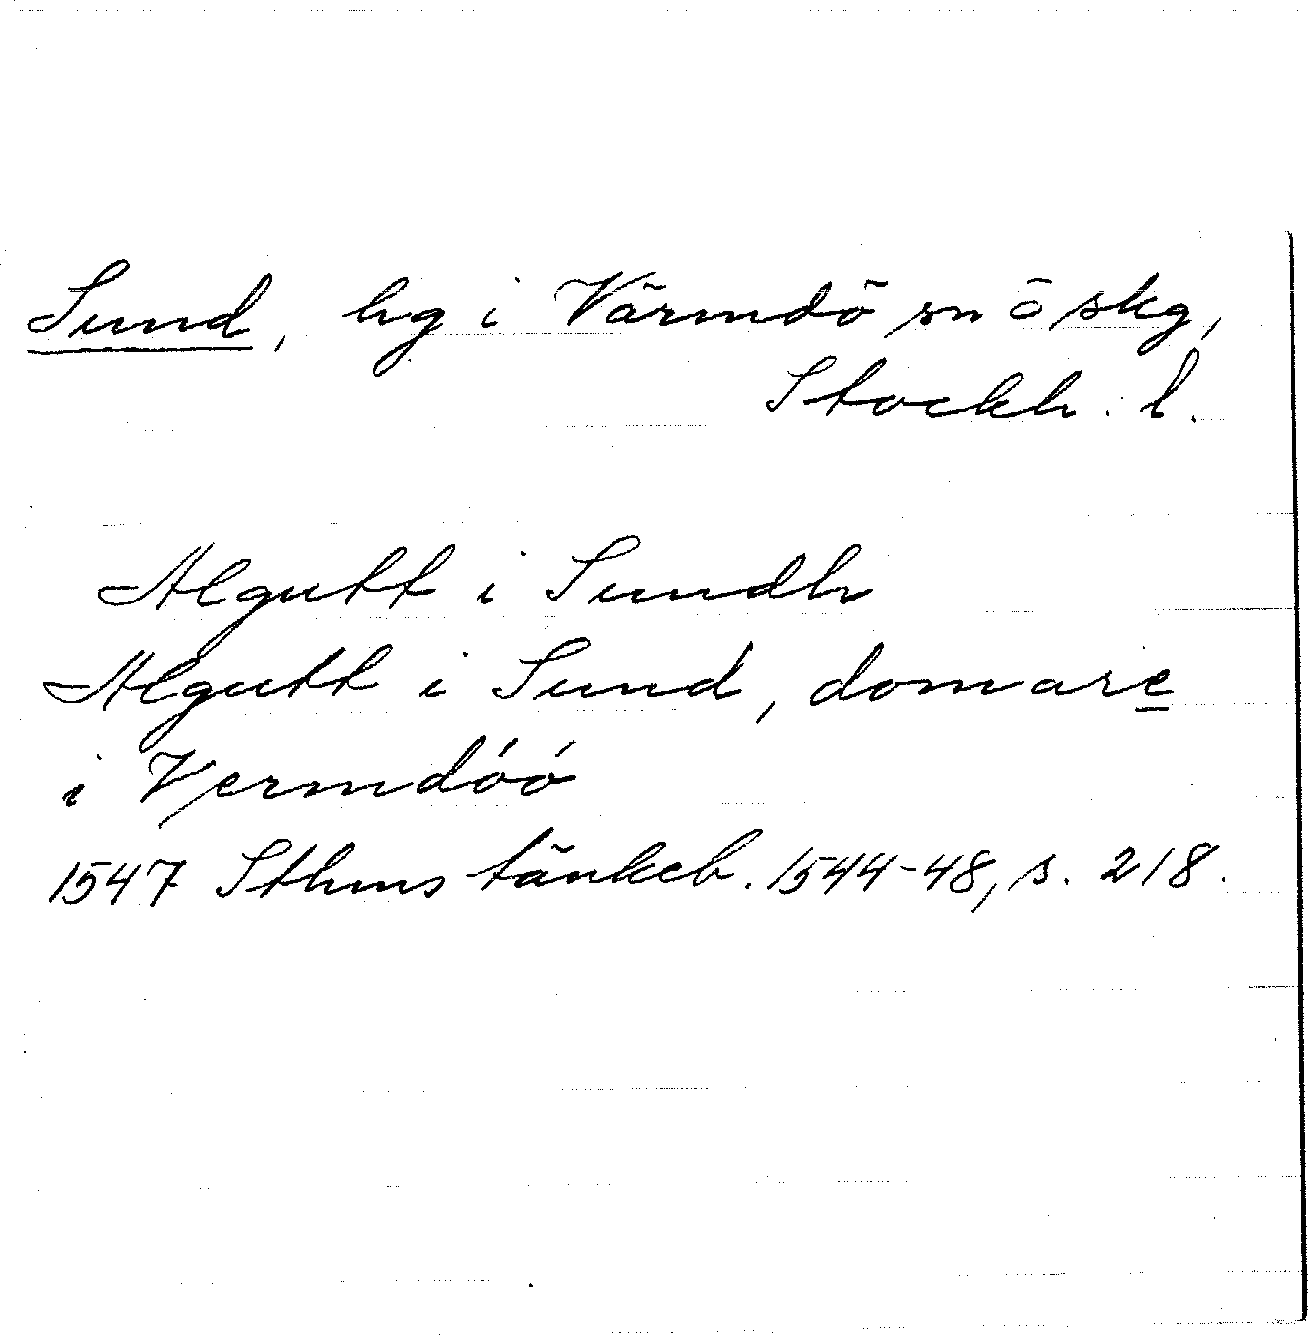 Sund, hg i Värmdö sn o skg,
Stockh. l.
Algutt i Sundh
Algutt i Sund, domare
i Vermdóó
1547 Sthms tänkeb. 1544-48, s. 218.